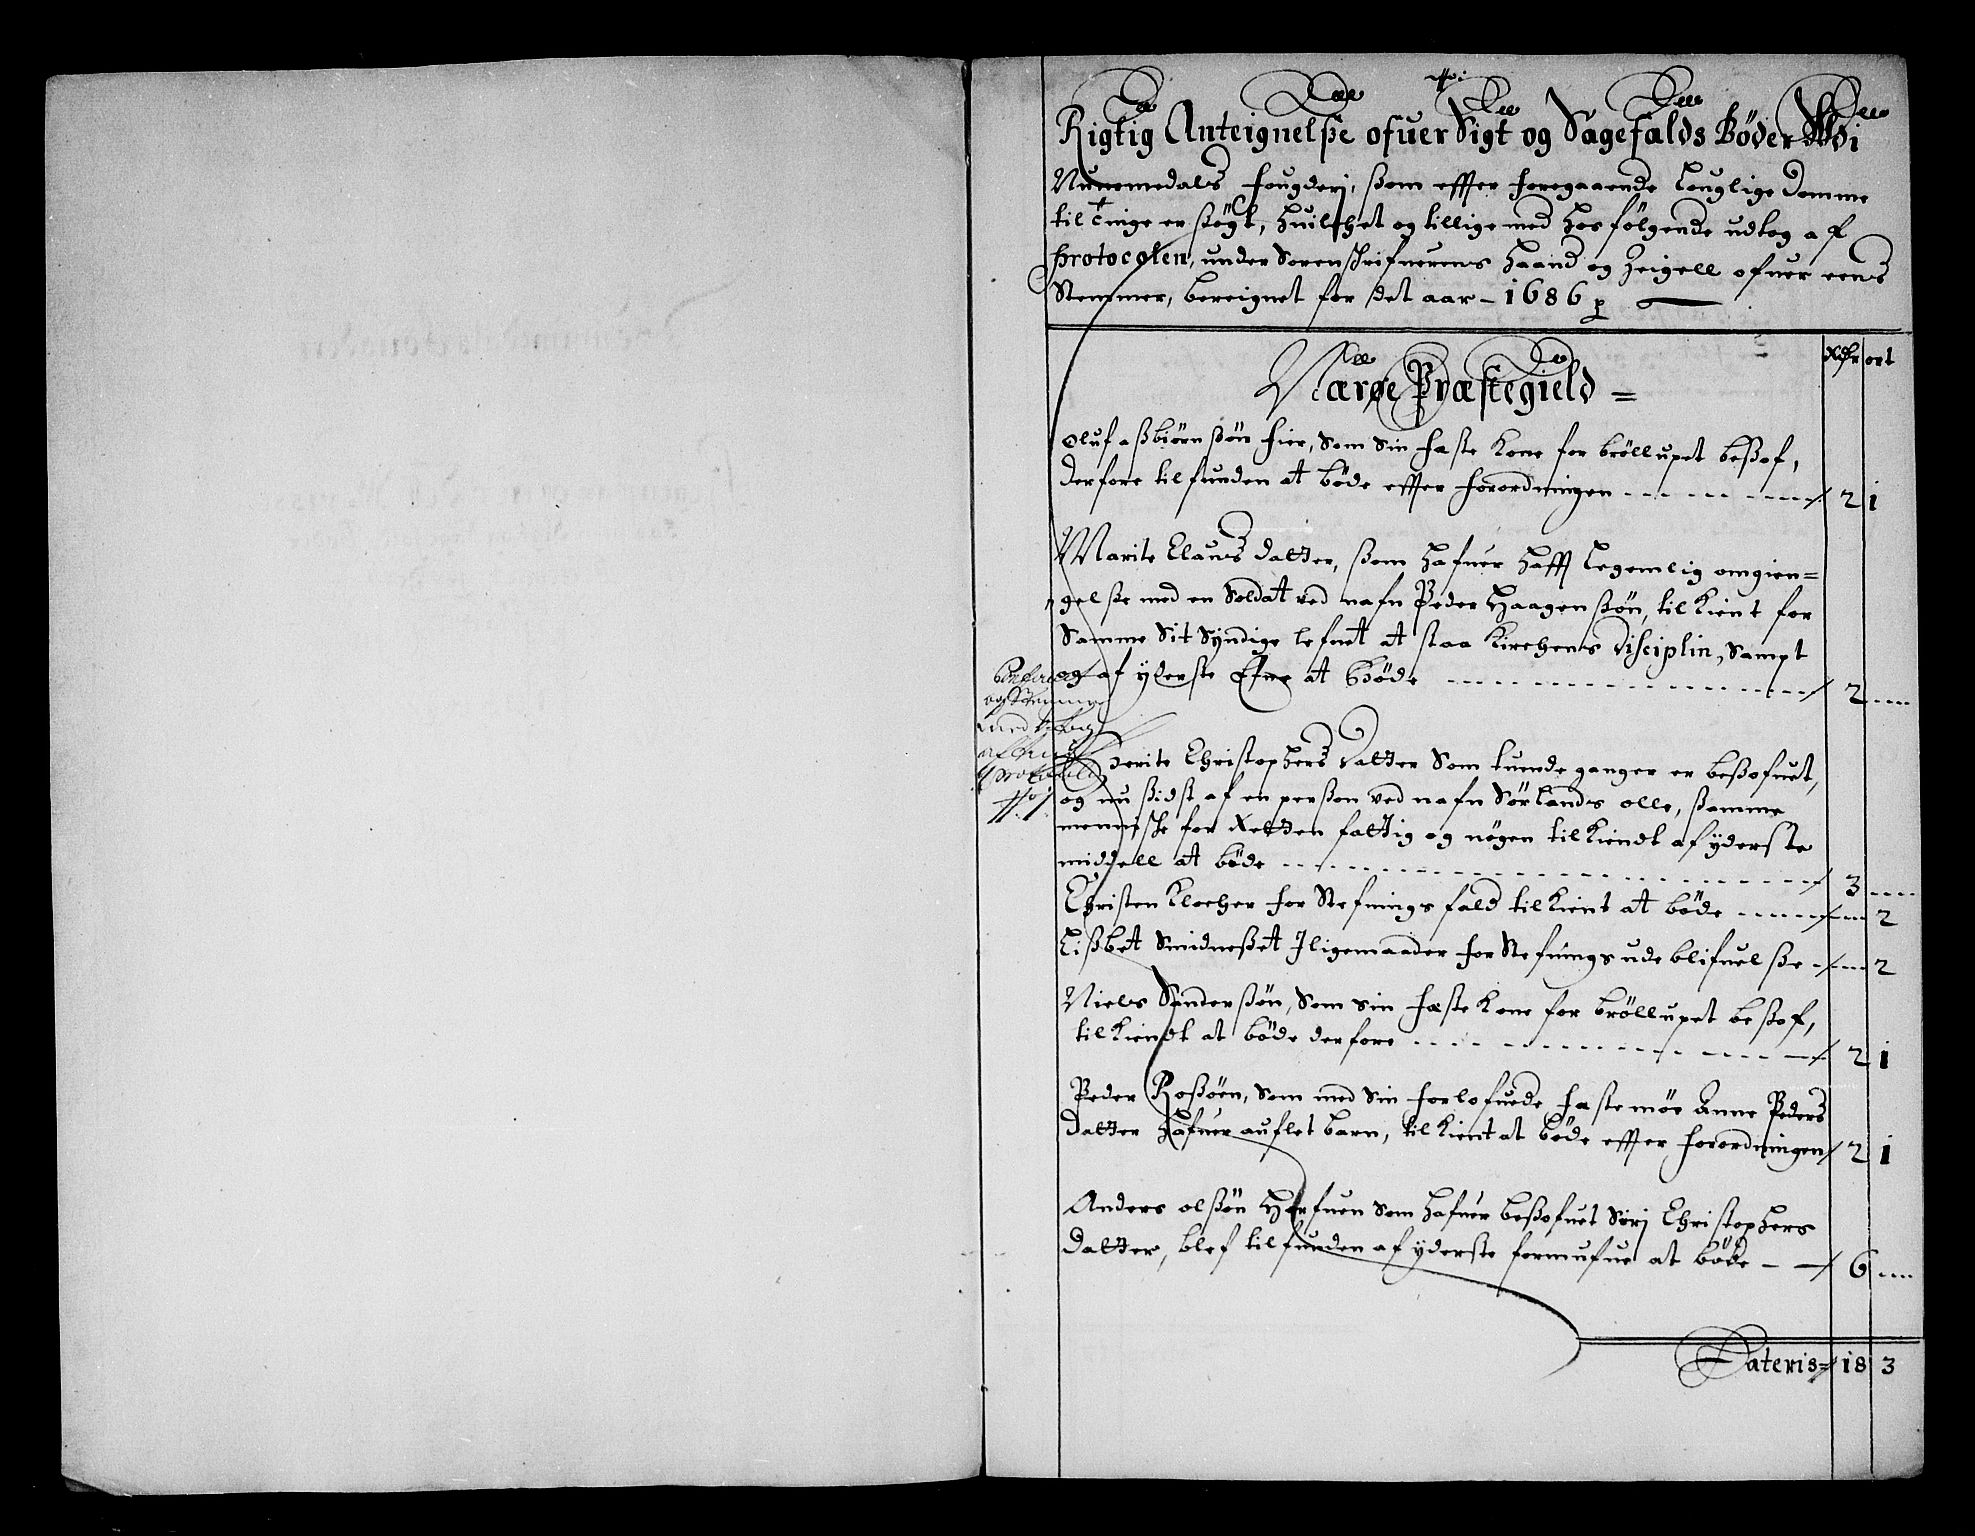 Rigtig Anteignelse ofuer Sigt og Sagefalds Bøder Udi
Nummedals fougderj, ßom effter foregaaende louglige domme
til tinge er ßøgt, huilchet og tillige med hos følgende udtog af
protocolen, under Sorenschrifuerens haand og Zeigell ofuer eens
Stemmer, bereignet for det aar – 1686
Rdr ort
Nærøe Præstegield =
Oluf aßbiørnßøn fier, som sin fæste kone for brøllupet beßof,
derfore tilfunden at bøde effter forordningen 2 1
Marite Clausdatter, ßom hafuer hafft legemlig omgien=
gelße med en Soldat ved nafn Peder Haagenßøn, tilkient for
samme sit syndige lefnet at staa Kirchens disciplin, sampt
og af yderste Efne at bøde 2
Confererit
og Stemmer
med
Protocoll
Berite Christophersdatter som tuende ganger er beßofuet,
og nu ßidst af en perßon ved nafn Sørlands olle, ßamme
menische for Retten fattig og nøgen tilkiendt af yderste
middell at bøde 3
Christen Klocher for Stefnings fald tilkient at bøde 2
Lißbet Smidneßet Iligemaader for Stefnings udeblifuelße 2
Niels Sanderßøn, som sin fæste kone for brøllupet beßof,
tilkiendt at bøde derfore 2 1
Peder Roßøen, som med sin forlofuede fæstemøe Anne Peders
datter hafuer auflet barn, tilkient at bøde effter forordningen 2 1
Anders olßøn Harfuen som hafuer beßofuet Sirj Christophers
datter, blef tilfunden af yderste formufue at bøde 6
Lateris 18 3